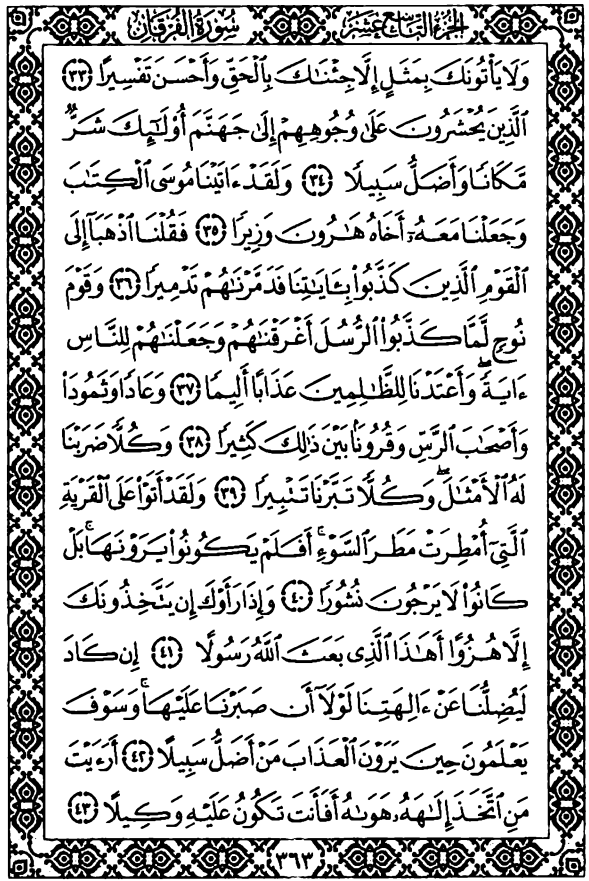 الجزء التاسع عشر
سورة الفرقان
وَلَا يَأْتُونَكَ بِمَثَلٍ إِلَّا جِئْنَٰكَ بِٱلْحَقِّ وَأَحْسَنَ تَفْسِيرًا ٣٣
ٱلَّذِينَ يُحْشَرُونَ عَلَىٰ وُجُوهِهِمْ إِلَىٰ جَهَنَّمَ أُوْلَٰٓئِكَ شَرٌّ
مَّكَانًا وَأَضَلُّ سَبِيلًا ٣٤ وَلَقَدْ ءَاتَيْنَا مُوسَى ٱلْكِتَٰبَ
وَجَعَلْنَا مَعَهُۥٓ أَخَاهُ هَٰرُونَ وَزِيرًا ٣٥ فَقُلْنَا ٱذْهَبَآ إِلَى
ٱلْقَوْمِ ٱلَّذِينَ كَذَّبُواْ بِـَٔايَٰتِنَا فَدَمَّرْنَٰهُمْ تَدْمِيرًا ٣٦ وَقَوْمَ
نُوحٍ لَّمَّا كَذَّبُواْ ٱلرُّسُلَ أَغْرَقْنَٰهُمْ وَجَعَلْنَٰهُمْ لِلنَّاسِ
ءَايَةً ۖ وَأَعْتَدْنَا لِلظَّٰلِمِينَ عَذَابًا أَلِيمًا ٣٧ وَعَادًا وَثَمُودَاْ
وَأَصْحَٰبَ ٱلرَّسِّ وَقُرُونًۢا بَيْنَ ذَٰلِكَ كَثِيرًا ٣٨ وَكُلًّا ضَرَبْنَا
لَهُ ٱلْأَمْثَٰلَ ۖ وَكُلًّا تَبَّرْنَا تَتْبِيرًا ٣٩ وَلَقَدْ أَتَوْاْ عَلَى ٱلْقَرْيَةِ
ٱلَّتِىٓ أُمْطِرَتْ مَطَرَ ٱلسَّوْءِ ۚ أَفَلَمْ يَكُونُواْ يَرَوْنَهَا ۚ بَلْ
كَانُواْ لَا يَرْجُونَ نُشُورًا ٤٠ وَإِذَا رَأَوْكَ إِن يَتَّخِذُونَكَ
إِلَّا هُزُوًا أَهَٰذَا ٱلَّذِى بَعَثَ ٱللَّهُ رَسُولًا ٤١ إِن كَادَ
لَيُضِلُّنَا عَنْ ءَالِهَتِنَا لَوْلَآ أَن صَبَرْنَا عَلَيْهَا ۚ وَسَوْفَ
يَعْلَمُونَ حِينَ يَرَوْنَ ٱلْعَذَابَ مَنْ أَضَلُّ سَبِيلًا ٤٢ أَرَءَيْتَ
مَنِ ٱتَّخَذَ إِلَٰهَهُۥ هَوَىٰهُ أَفَأَنتَ تَكُونُ عَلَيْهِ وَكِيلًا ٤٣
٣٦٣